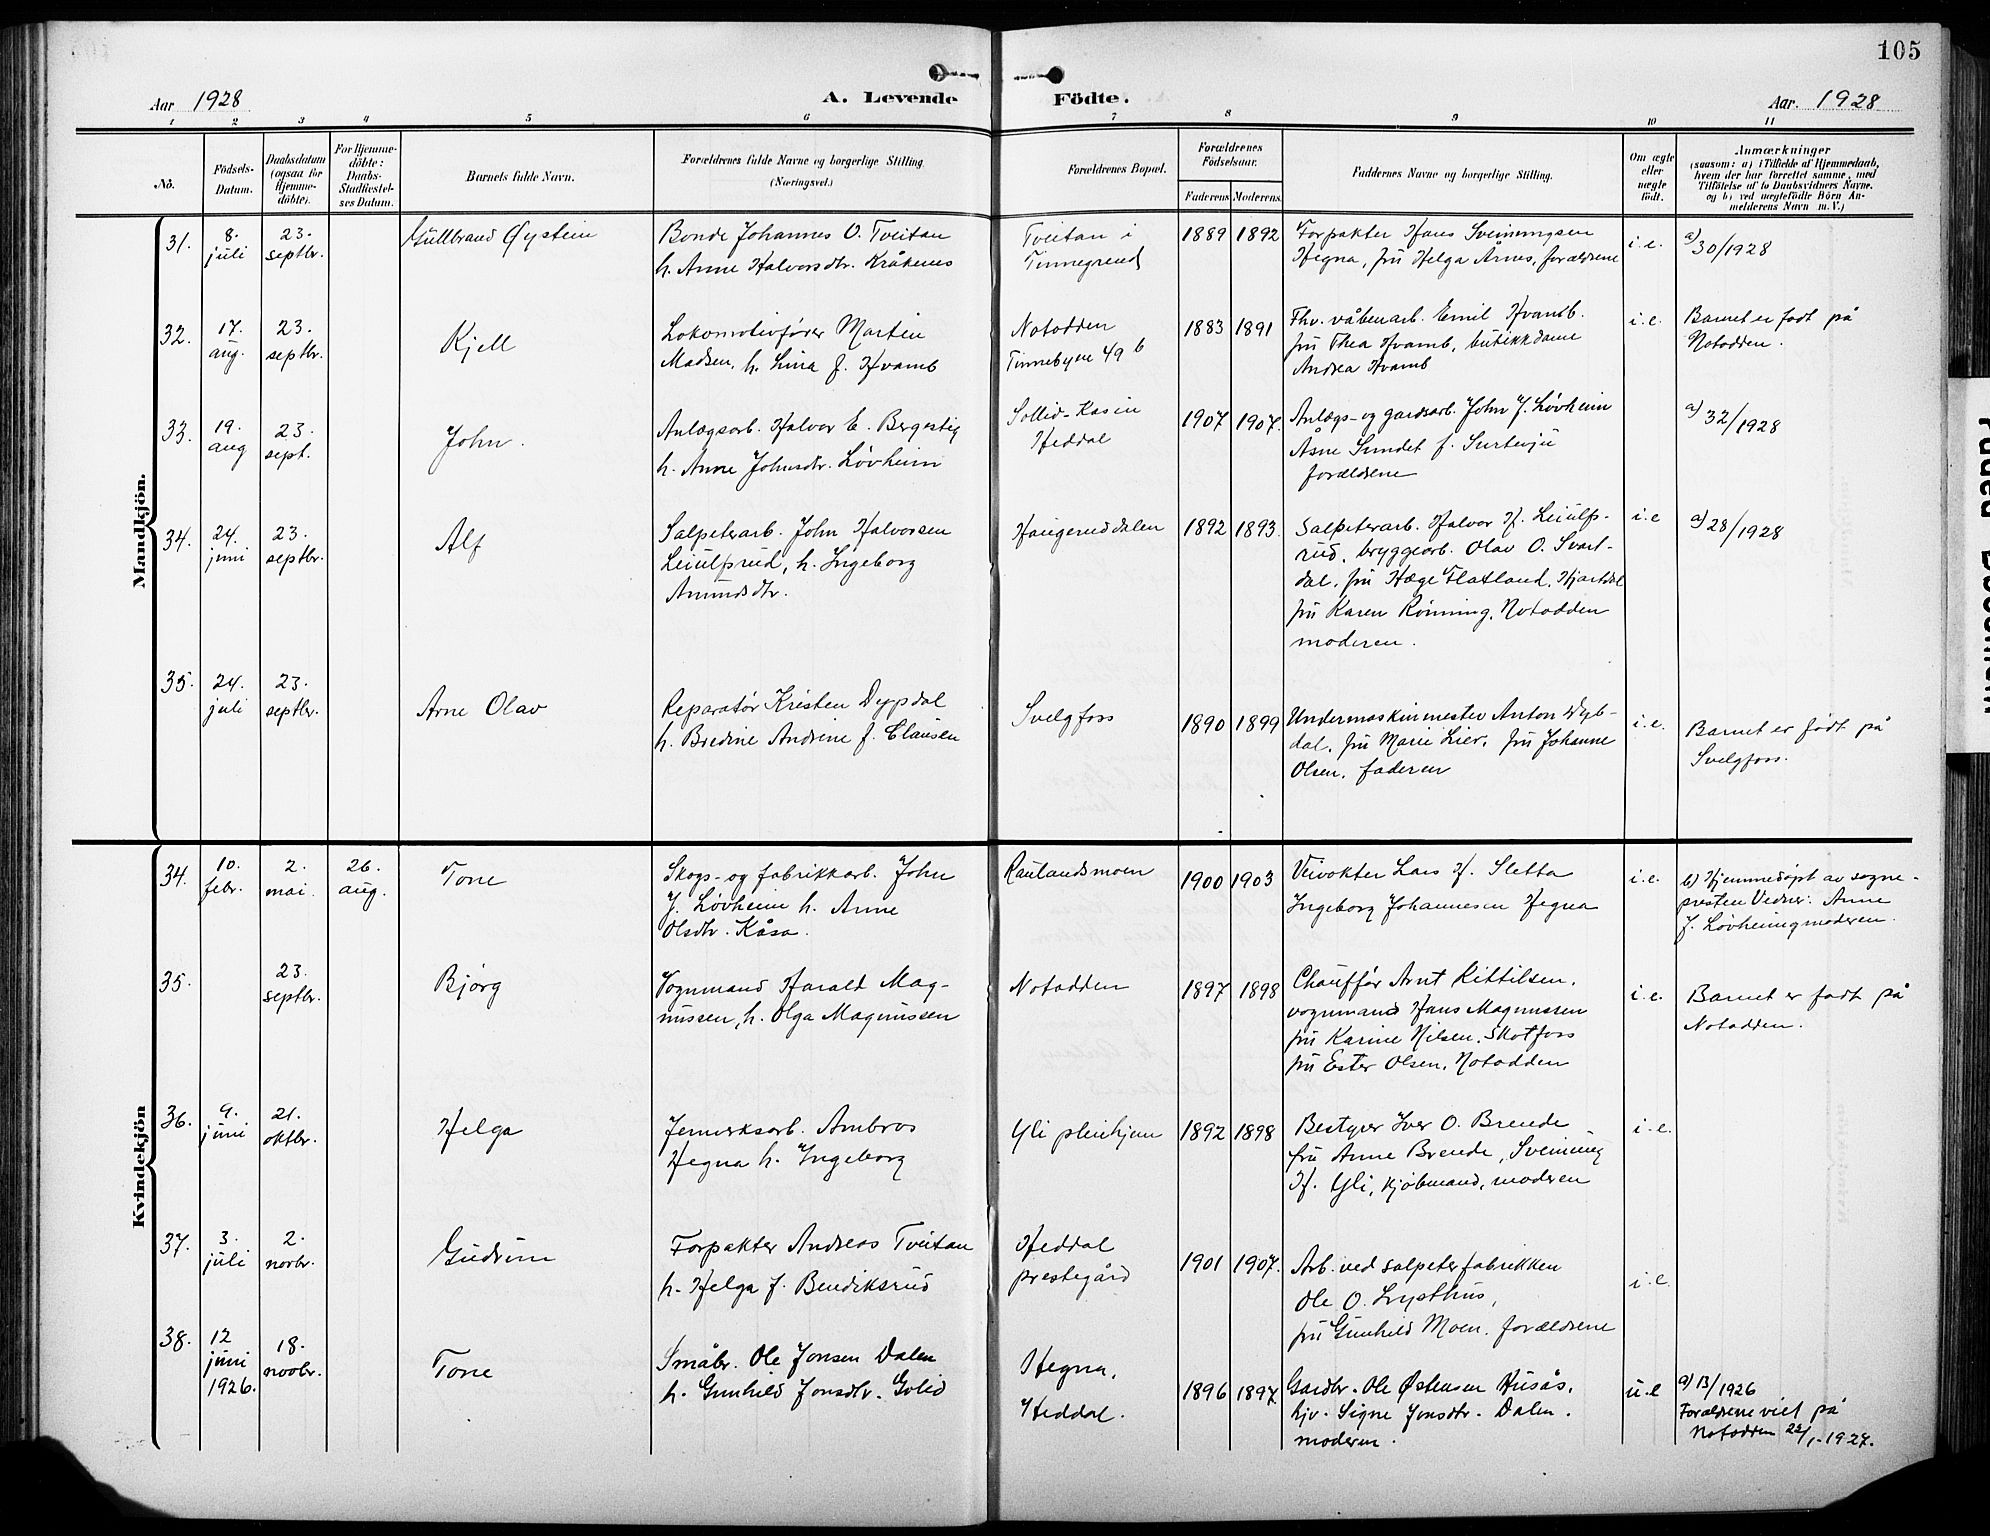 105
Aar 1928
A. Levende Födte.
Aar. 1928
1 2 3 4 5 6 7 8 9 10 11
No.
Födsels-
Datum.
Daabsdatum
(ogsaa for
Hjemme-
döbte).
For Hjemme-
döbte:
Daabs-
Stadfæstel-
ses Datum.
Barnets fulde Navn.
Forældrenes fulde Navne og borgerlige Stilling
(Næringsvei.)
Forældrenes Bopæl.
Forældrenes
Födselsaar.
Faderens Moderens
Faddernes Navne og borgerlige Stilling.
Om ægte
eller
uægte
födt.
Anmærkninger
(saasom: a) i Tilfælde af Hjemmedaab,
hvem der har forrettet samme, med
Tilföielse af to Daabsvidners Navne,
og b) ved uægtefödte Börn An-
melderens Navn m. V.)
Mandkjön.
31.
8.
juli
23.
septbr.
Gullbrand Øystein
Bonde Johannes O. Tveitan
h. Anne Halvorsdtr. Kråkenes
Tveitan i
Tinnegrend
1889 1892
Forpakter Hans Sveinungsen
Hegna, fru Helga Årnes, forældrene
i.e.
a) 30/1928
32.
17.
aug.
23.
septbr.
Kjell
Lokomotivfører Martin
Madsen, h. Lina f. Hvamb
Notodden
Tinnebyne 49 b
1883 1891
Fhv. våbenarb. Emil Hvamb.
fru Thea Hvamb, butikkdame
Andrea Hvamb
i.e.
Barnet er født på
Notodden.
33.
19.
aug
23.
sept.
John.
Anlægsarb. Halvor E. Bergestig
h. Anne Johnsdtr. Løvheim
Sollid-Kasin
Heddal
1907 1907.
Anlægs- og gardsarb. John J. Løvheim
Åsne Sundet f. Surtevju
forældrene
a) 32/1928
34.
24.
juni
23.
septbr.
Alf
Salpeterarb. John Halvorsen
Leiulfsrud, h. Ingeborg
Amundsdtr.
Haugeruddalen
1892 1893.
Salpeterarb. Halvor H. Leiulfs-
rud, bryggearb. Olav O. Svart-
dal, fru Hæge Flatland, Hjartdal
fru Karen Rønning, Notodden
moderen.
i.e
a) 28/1928
35.
24.
juli
23.
septbr.
Arne Olav
Reparatør Kristen Dypdal
h. Bredine Andrine f. Clausen
Svelgfoss
1890 1899
Undermaskinmester Anton Dyb-
dal, fru Marie Lier, fru Johanne
Olsen, faderen
i.e.
Barnet er født på
Svelgfoss.
Kvindekjön
34.
10.
febr.
2.
mai.
26.
aug.
Tone
Skogs- og fabrikkarb. John
J. Løvheim h. Anne
Olsdtr. Kåsa.
Raulandsmoen
1900 1903
Veivokter Lars H. Sletta
Ingeborg Johannesen Hegna
i.e.
b) Hjemmedøpt av sogne-
presten Vedner: Anne
J. Løvheim og moderen.
35.
23.
septbr.
Bjørg
Vognmand Harald Mag-
nussen, h. Olga Magnussen
Notodden
1897 1898
Chauffør Arnt Kittilsen,
vognmand Hans Magnussen
fru Karine Nilsen, Skotfoss
fru Ester Olsen, Notodden
i.e.
Barnet er født på
Notodden.
36.
9.
juni
21.
oktbr.
Helga
Jernverksarb. Ambros
Hegna h. Ingeborg
Yli pleiehjem
1892 1898
Bestyrer Iver O. Brende
fru Anne Brende, Sveinung
H. Yli, kjøbmand, moderen
i.e.
37.
3.
juli
2.
novbr.
Gudrun
Forpakter Andreas Tveitan
h. Helga f. Bendiksrud
Heddal
prestegård
1901 1907.
Arb. ved salpeterfabrikken
Ole O. Lysthus,
fru Gunhild Moen, forældrene
i.e.
38.
12
juni
1926.
18.
novbr.
Tone
Småbr. Ole Jonsen Dalen
h. Gunhild Jonsdtr. Golid
Hegna,
Heddal.
1896 1897
Gardbr. Ole Østensen Husås,
hjv. Signe Jonsdtr. Dalen.
moderen.
u.e
a) 13/1926
Forældrene viet på
Notodden 22/1-1927.